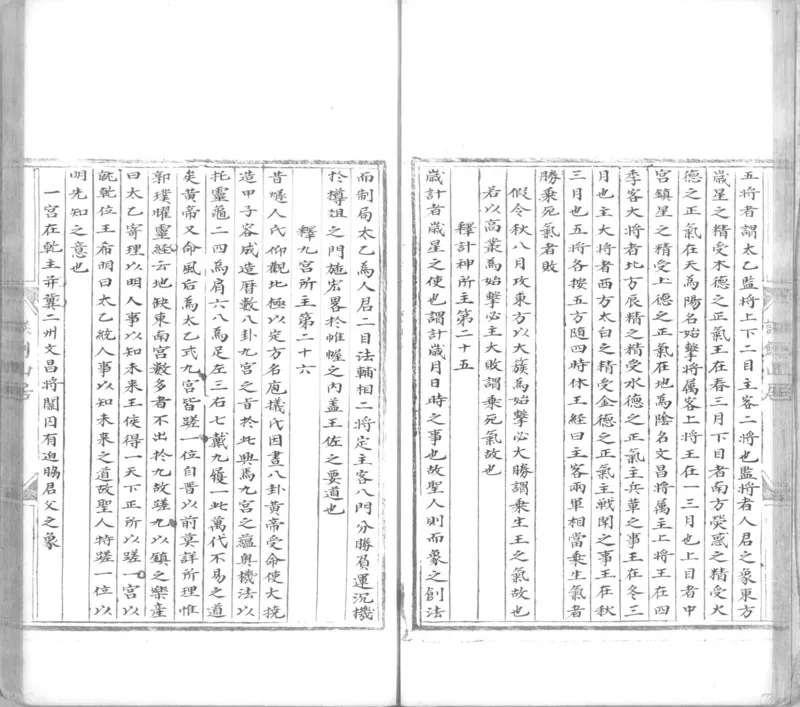 五將者謂太乙監將上下二目主客二將也監將者人君之象東方
歲星之精受木德之正氣王在春三月下目者南方熒惑之精受火
德之正氣在天為陽名始擊將属客上將王在一三月也上目者中
宮鎮星之精受土德之正氣在地為陰名文昌將属主上將王在四
季客大將者北方辰精之精受水德之正氣主兵革之事王在冬三
月也主大將者西方太白之精受金德之正氣主戦閗之事王在秋
三月也五將各按五方随四時休王經曰主客兩軍相當乗生氣者
勝乗死氣者敗
假令秋八月攻東方以大簇為始擊必大勝謂乗生王之氣故也
若以高叢為始擊必主大敗謂乗死氣故也
釋計神所主第二十五
歲計者歲星之使也謂計歲月日時之事也故聖人則而象之創法
而制局太乙為人君二目法輔相二將定主客八門分勝負運沉機
於樽俎之門施宏畧於帷幄之内盖王佐之要道也
釋九宮所主第二十六
昔燧人氏仰觀北極以定方名庖犧氏因畫八卦黄帝受命使大撓
造甲子容成造曆數八卦九宮之旨於此興焉九宮之蘊奥機法以
托靈龜二四為肩六八為足左三右七戴九履一此萬代不易之道
矣黄帝又命風后為太乙式九宮皆蹉一位自晋以前莫詳所理惟
郭璞曜靈經云地缺東南宮數多者不出於九故蹉九以鎮之樂産
曰太乙寄理以明人事以知未來王侯得一天下正所以蹉一宮以
就乾位王希明曰太乙統人事以知未来之道故聖人特蹉一位以
明先知之意也
一宮在乾主并冀二州文昌將關囚有迫脇君父之象